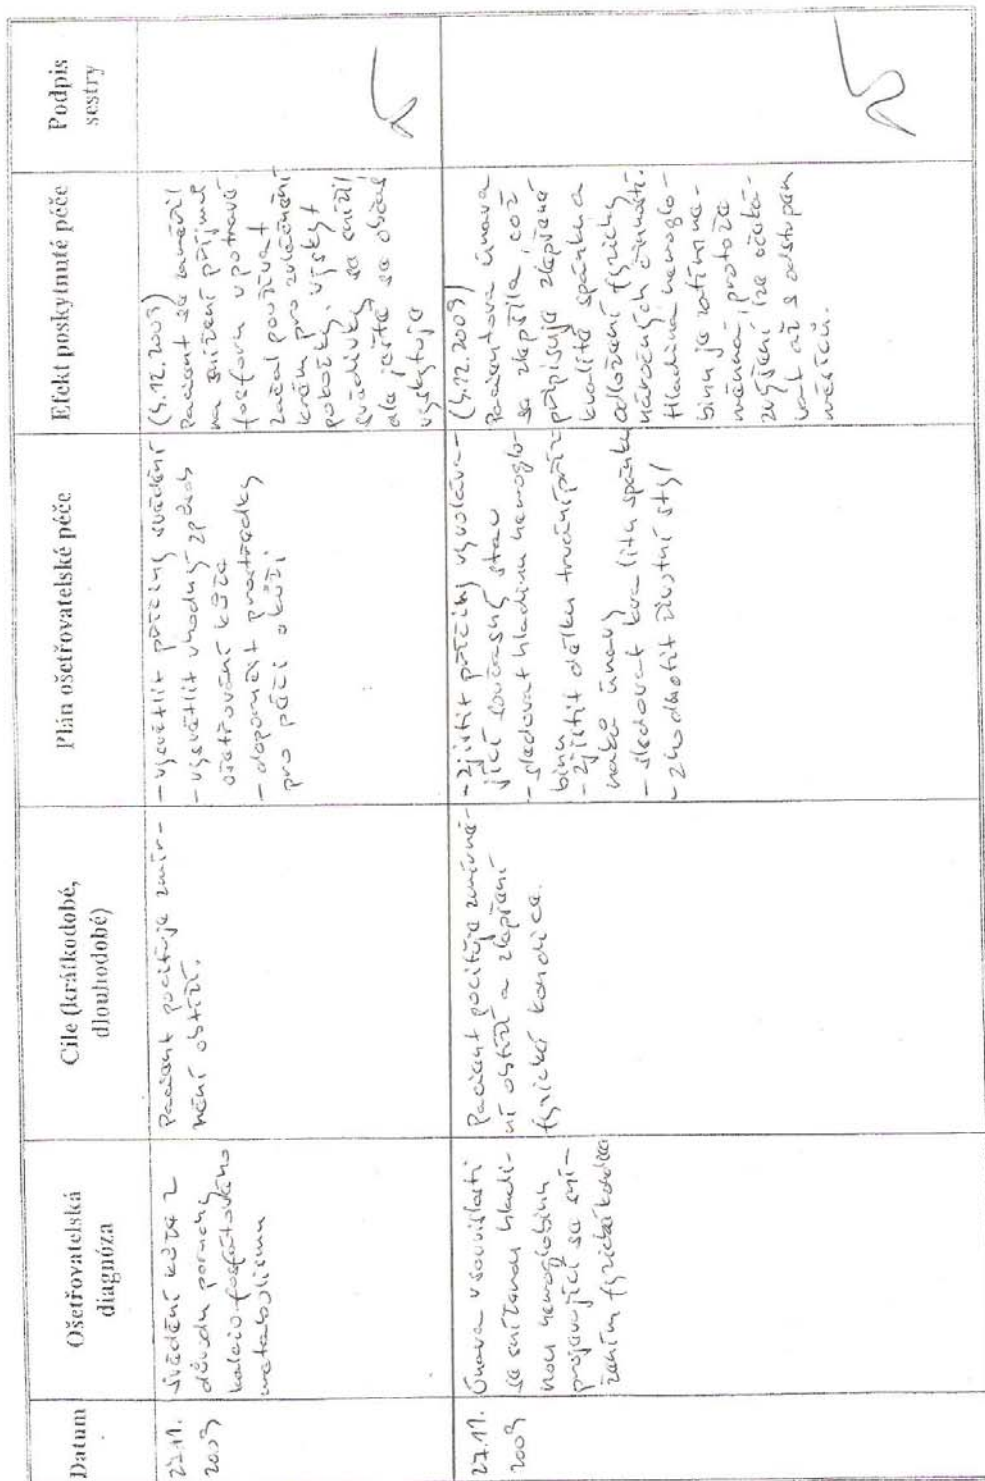 Datum
Ošetřovatelská
diagnóza
Cíle (krátkodobé,
dlouhodobé)
Plán ošetřovatelské péče
Efekt poskytnuté péče
Podpis
sestry
27.11.
2003
Svědění kůže z
důvodu poruchy
kalcio-fosfátového
metabolismu
Pacient pociťuje zmír-
nění obtíží.
- vysvětlit příčiny svědění
- vysvětlit vhodný způsob
ošetřování kůže
- doporučit prostředky
pro péči o kůži
(4.12.2003)
Pacient se zaměřil
na snížení příjmu
fosforu v potravě
začal používat
krém pro zvláčnění
pokožky, výskyt
svědivky se snížil
ale ještě se občas
vyskytuje
27.11.
2003
Únava v souvislosti
se sníženou hladi-
nou hemoglobinu
projevující se sní-
žením fyzické kondice
Pacient pociťuje zmírně-
ní obtíží a zlepšení
fyzické kondice.
- zjistit příčiny vyvoláva-
jící současný stav
- sledovat hladinu hemoglo-
binu
- zjistit délku trvání příz-
naků únavy
- sledovat kvalitu spánku
- zhodnotit životní styl
(4.12.2003)
Pacientova únava
se zlepšila, což
připisuje zlepšené
kvalitě spánku a
odložení fyzicky
náročných činností.
Hladina hemoglo-
binu je zatím ne-
měnná, protože
zvýšení lze očeká-
vat až s odstupem
měsíců.